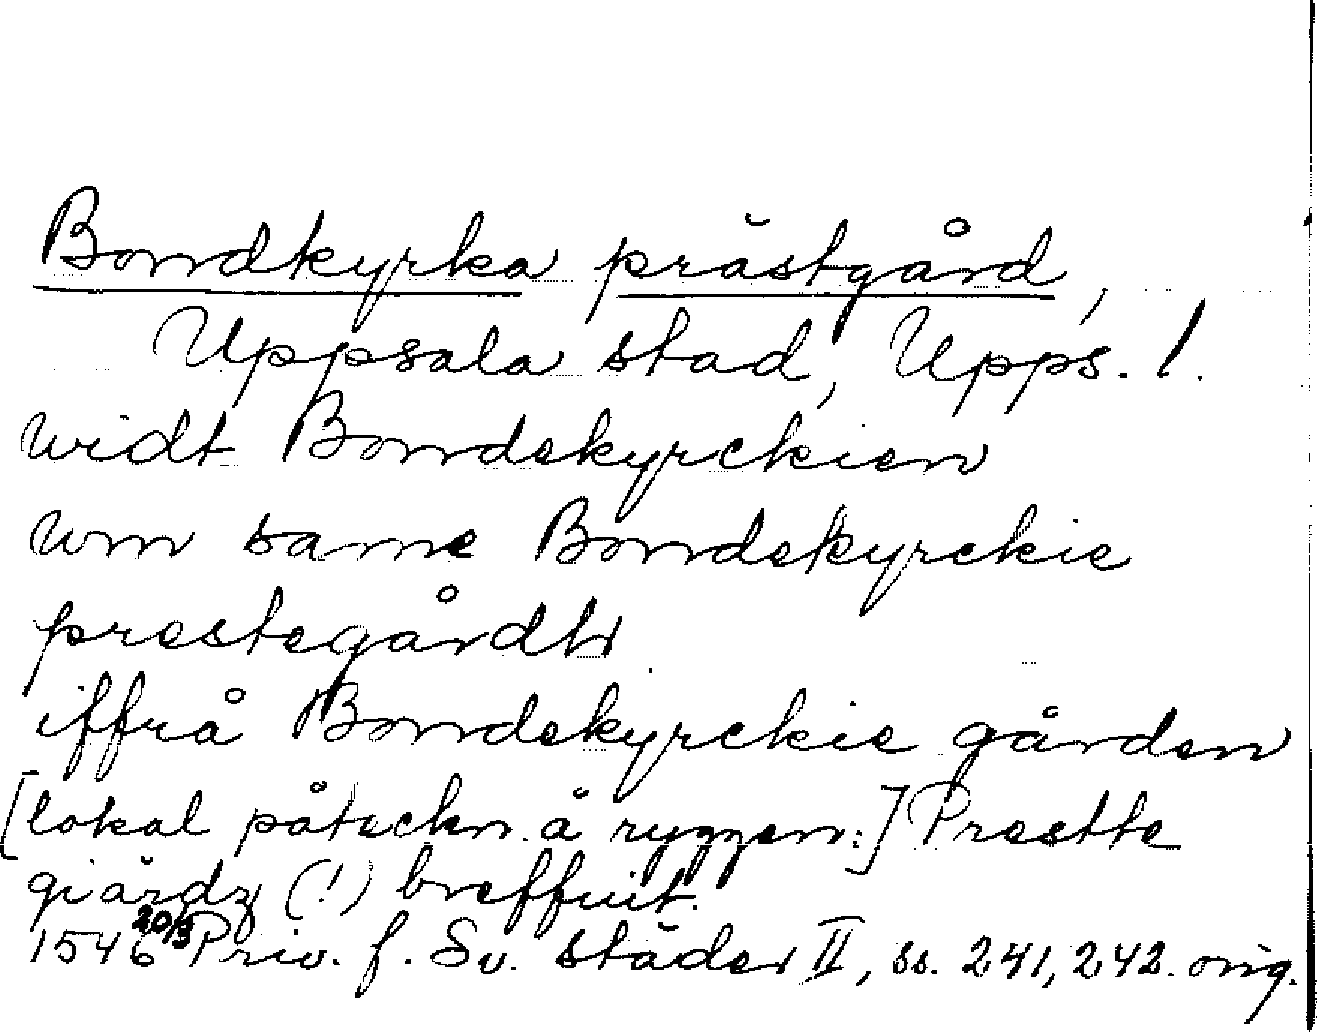 Bondkyrka prästgård,
Uppsala stad, Upps. l.
widt Bondekyrckien
wm same Bondekyrckie
prestegårdh
iffrå Bondekyrckie gården
[lokal påteckn. å ryggen:] Prestte
giärdz (!) breffuit.
1546 20/3 Priv. f. Sv. städer II, ss. 241, 242. orig.